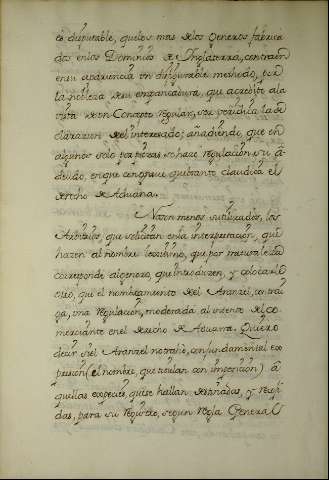 es disputable, que los mas de los Generos fabrica
dos en los Dominios de Inglaterra, contraen
en su apariencia un disputable methodo, por
la nobleza de su empancadura, que acredita ala
vista de un Concepto regular, se verifica la de
claracion del interesado; añadiendo, que en
algunos solo por piezas se hace regulacion a su a
delūo, en que con grave quebranto claudica el
derecho de Aduana.
No son menos sutilizados, los
Arbitrios, que solicitan en la interpretacion, que
hazen al nombre legitimo, que por naturaleza
corresponde al genero, que introducen, y colocarle
otro, que el nombramiento del Aranzel, contrai
ga, una regulacion, moderada al intento del Co
merciante en el derecho de Aduana. Quiero
decir si el Aranzel no trahe, con fundamental ex
presion (el nombre, que titulan con imposicion) a
quellas especies, que se hallan destinadas, y
das, para su registro, segun regla General